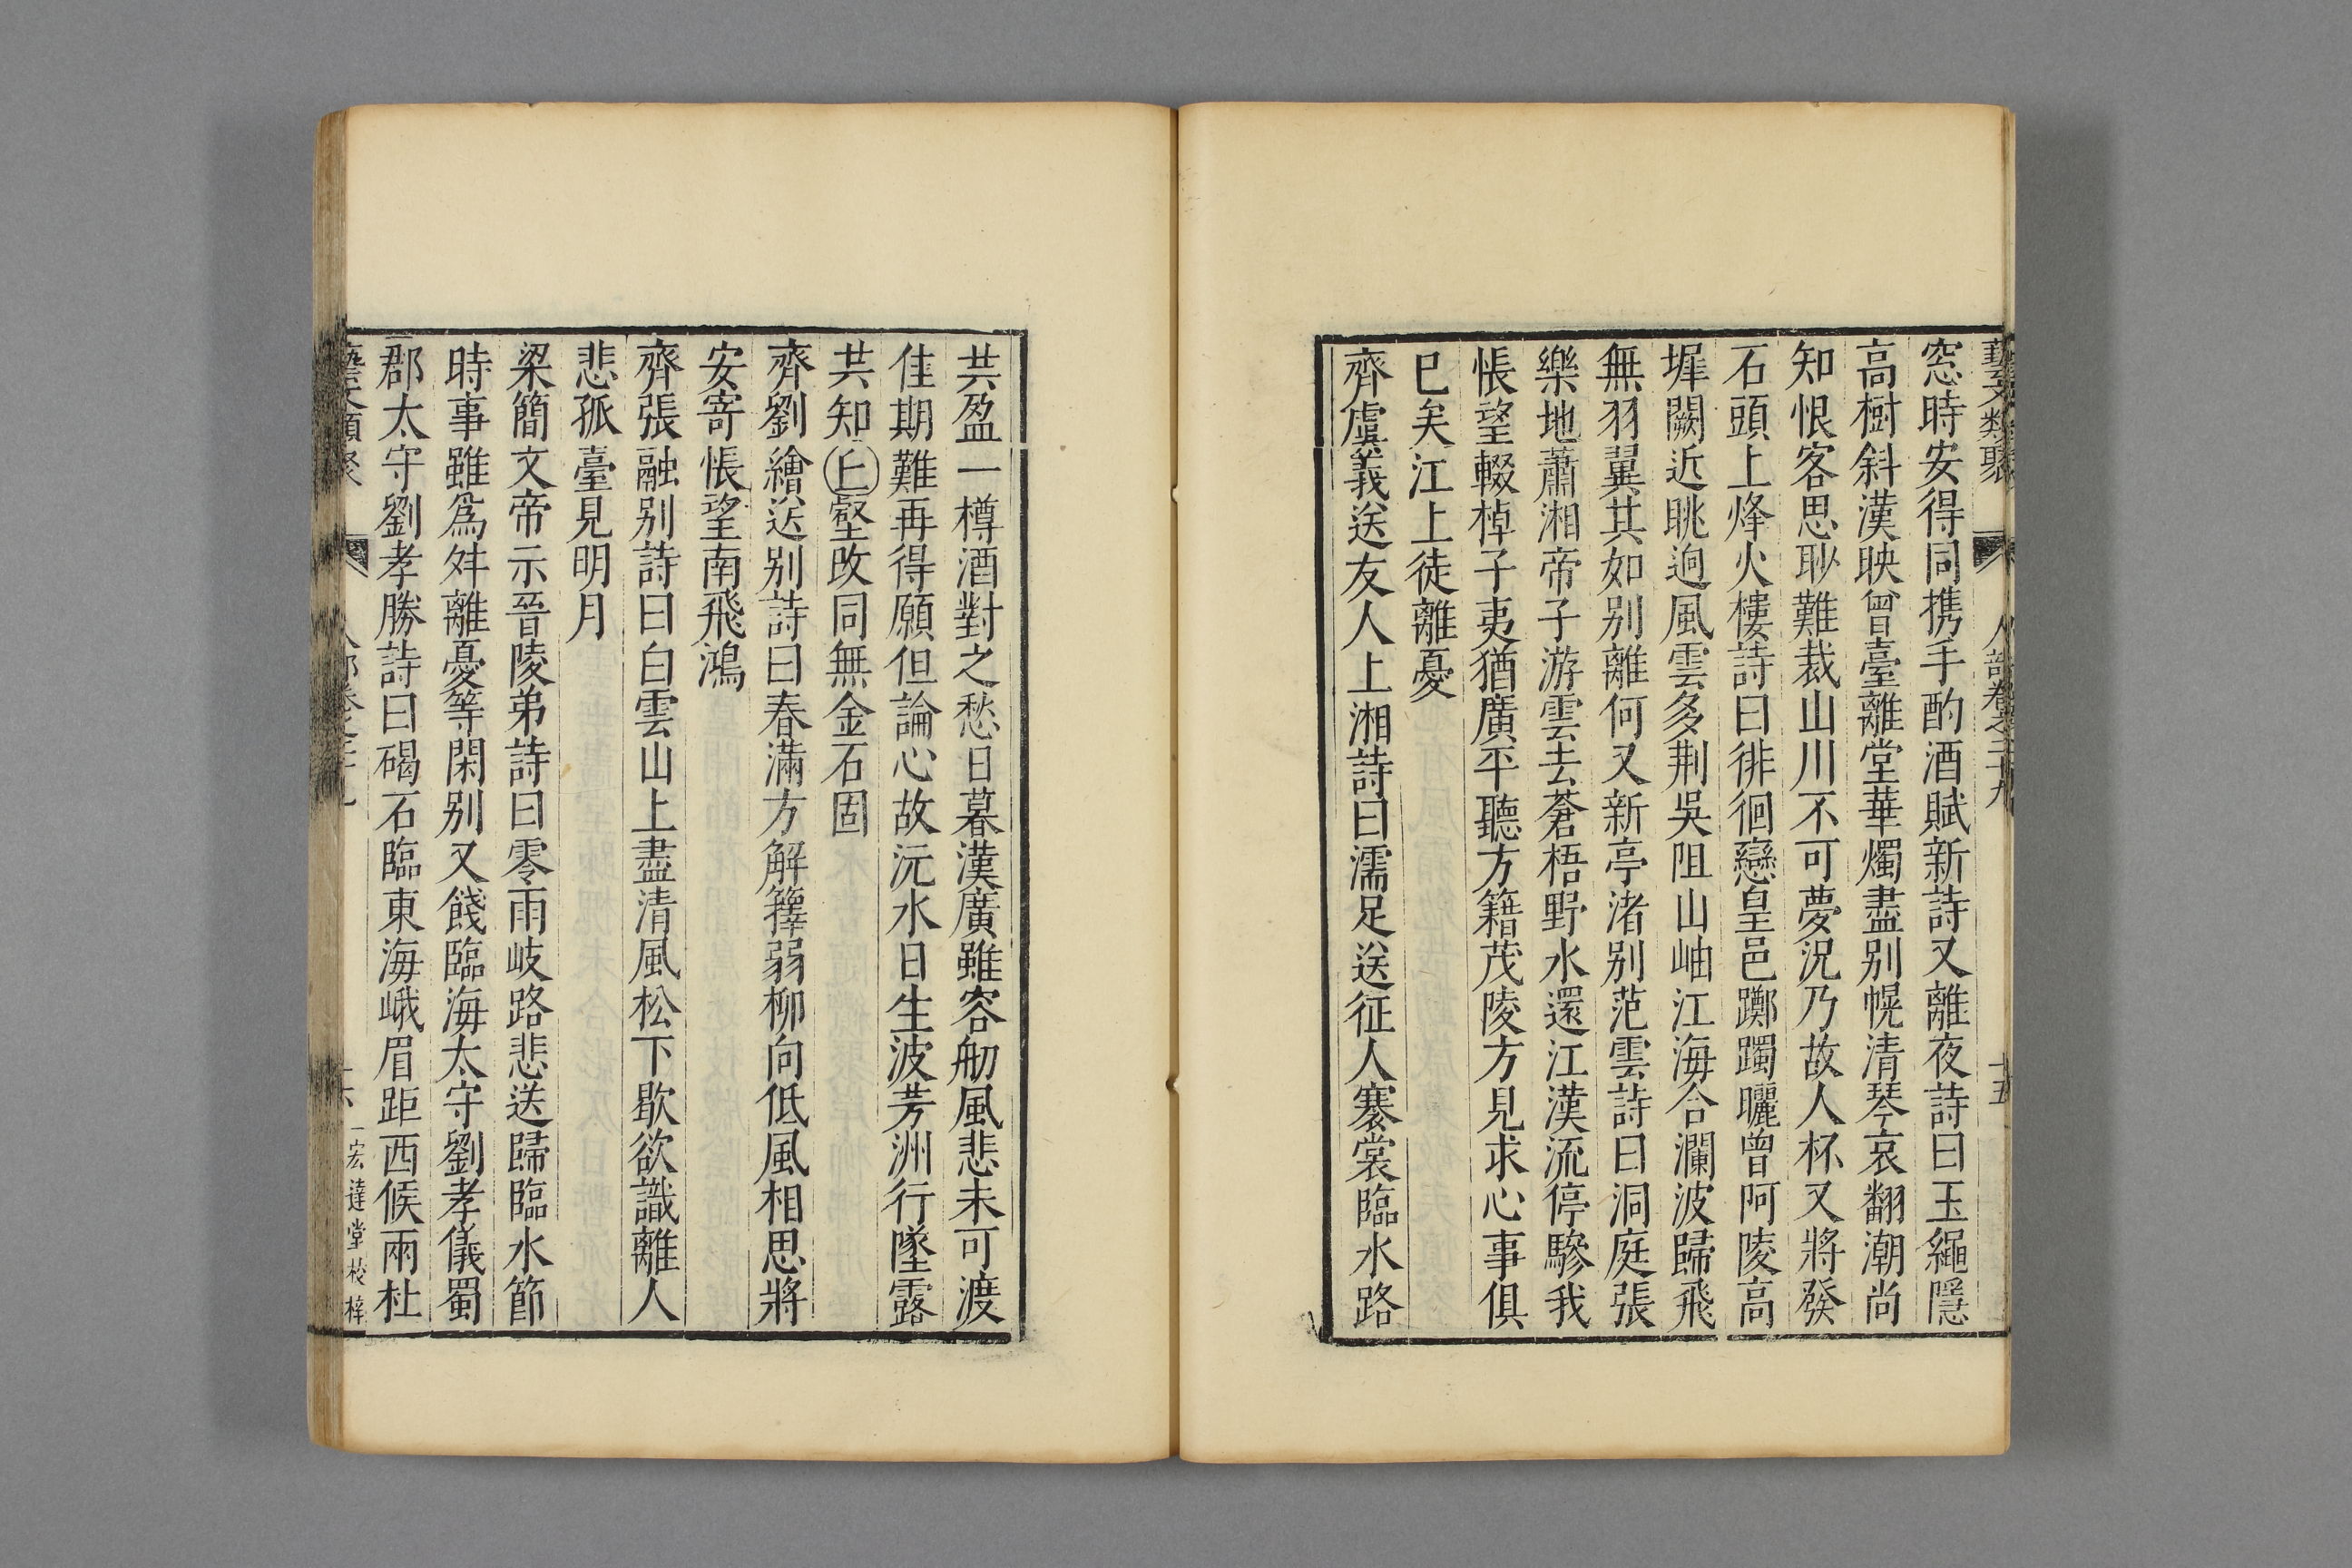 藝文類聚 人部卷之二十九 十五
窓時安得同携手酌酒賦新詩又離夜詩曰玉繩隱
高樹斜漢映曾臺離堂華燭盡别幌清琴哀翻潮尚
知恨客思眇難裁山川不可夢況乃故人杯又將發
石頭上烽火樓詩曰徘徊戀皇邑躑躅曬曾阿陵高
墀闕近眺逈風雲多荆吳阻山岫江海合瀾波歸飛
無羽翼其如别離何又新亭渚别范雲詩曰洞庭張
樂地蕭湘帝子游雲去蒼梧野水還江漢流停驂我
悵望輟棹子夷猶廣平聽方籍茂陵方見求心事俱
巳矣江上徒離憂
齊虞羲送友人上湘詩曰濡足送征人褰裳臨水路
共盈一樽酒對之愁日暮漢廣雖容舠風悲未可渡
佳期難再得願但論心故沅水日生波芳洲行墜露
共知上壑改同無金石固
齊劉繪送别詩曰春滿方解籜弱柳向低風相思將
安寄悵望南飛鴻
齊張融别詩曰白雲山上盡清風松下歇欲識離人
悲孤臺見明月
梁簡文帝示晉陵弟詩曰零雨岐路悲送歸臨水節
時事雖爲舛離憂等閑别又餞臨海太守劉孝儀蜀
郡太守劉孝勝詩曰碣石臨東海峨眉距西候兩杜
宏達堂校梓